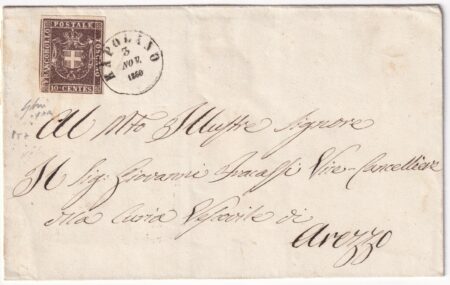 FRANCOBOLLO POSTALE TOSCANO
10 CENTES
RAPOLANO
3
NOV.
1860
Al Mto Illustre Signore
Il Sig: Giovanni Fracassi Vice-Cancelliere
della Curia Vescovile di
Arezzo